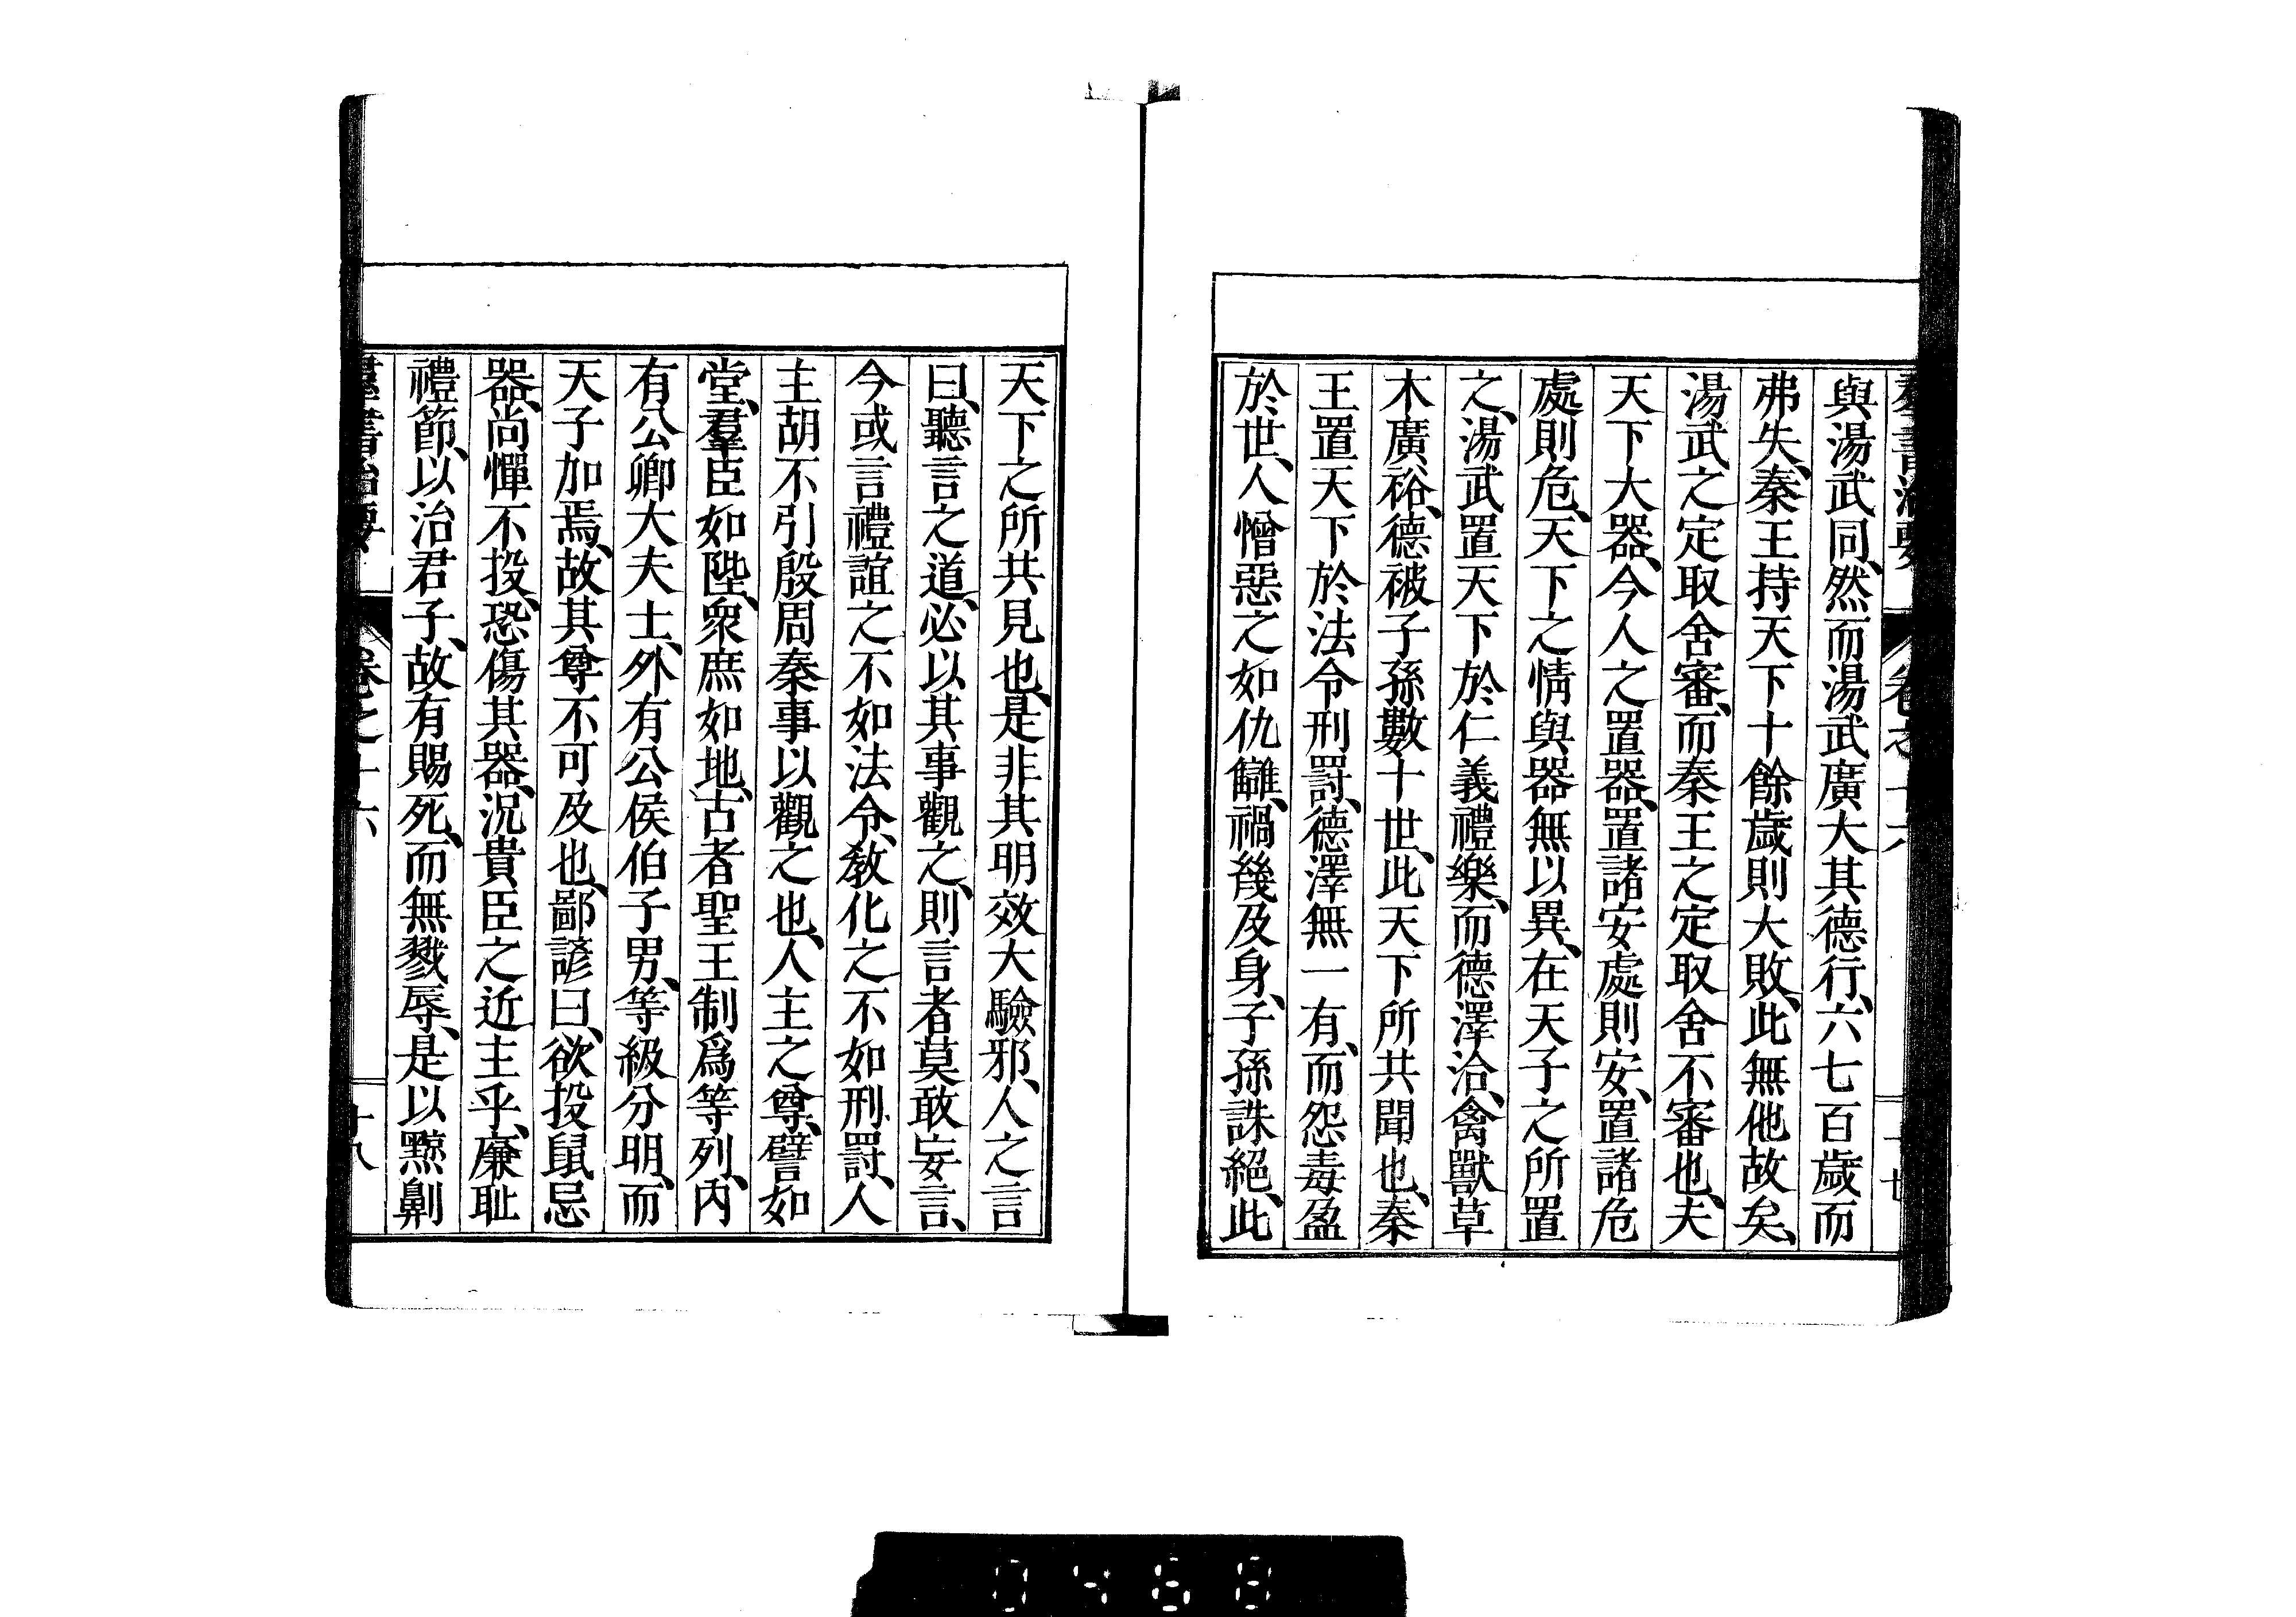 與湯武同、然而湯武廣大其德行、六七百歲而
弗失、秦王持天下十餘歲則大敗、此無他故矣、
湯武之定取舍審、而秦王之定取舍不審也、夫
天下大器、今人之置器、置諸安處則安、置諸危
處則危、天下之情與器無以異、在天子之所置
之、湯武置天下於仁義禮樂、而德澤洽、禽獸草
木廣裕、德被子孫數十世、此天下所共聞也、秦
王置天下於法令刑罰、德澤無一有、而怨毒盈
於世、人憎惡之如仇讎、禍幾及身、子孫誅絕、此
天下之所共見也、是非其明效大驗邪、人之言
曰、聽言之道、必以其事觀之、則言者莫敢妄言、
今或言禮誼之不如法令、教化之不如刑罰、人
主胡不引殷周秦事以觀之也、人主之尊、譬如
堂、羣臣如陛、衆庶如地、古者聖王制爲等列、內
有公卿大夫士、外有公侯伯子男、等級分明、而
天子加焉、故其尊不可及也、鄙諺曰、欲投鼠忌
器、尚憚不投、恐傷其器、況貴臣之近主乎、廉耻
禮節、以治君子、故有賜死、而無戮辱、是以黥劓
羣書治要 卷之十六 十八
0468